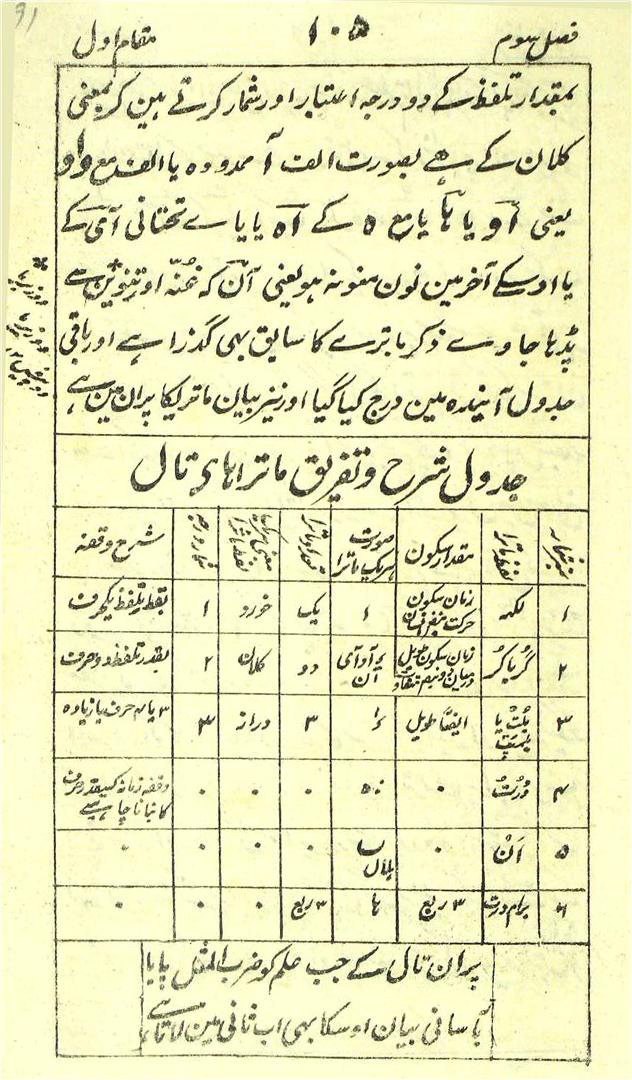 فصل سوم ۱۰۵ مقام اول
بمقدار تلفظ کے دو درجہ اعتبار اور شمار کرتے ہین گر بمعنی
کلان کے ہے بصورت الف آ ممدودہ یا الف مع واو
یعنی آو یا ہا یا مع ہ کے آہ یا یاے تحتانی آی کے
یا اوسکے آخر مین نون مغنونہ ہو یعنی آن کہ غنہ اور تنوین سے
پڑہا جاوے ذکر ماترے کا سابق بہی گذرا ہے اور باقی
جدول آیندہ مین درج کیا گیا اور نیز بیان ماتریکا پران مین ہے
جدول شرح و تفریق ماتراہای تال
نمبر شمار لفظ ماترا مقدار سکون صورت ہر یک ماترا تعداد ماترا معنی لفظ ماترا شمار درجہ شرح وقفہ
۱ لگہہ زمان سکون حرکت ۱ یک خورد ۱ بقدر تلفظ یکحرف
۲ گر یا گر زمان سکون طویل آ و آی آن دو کلان ۲ بقدر تلفظ دو حرف
۳ پلت یا ایضاً طویل ۳ دراز ۳ ۳ یا ۴ حرف یا زیادہ
۴ درت ۰ ۰ ۰ ۰ ۰ وقفہ زمانہ کا بنانا چاہیے
۵ ان ۰ ہلالی ۰ ۰ ۰ ۰
۶ برام درت ۳ ربع ۳ ربع ۰ ۰ ۰
پران تال کے جب علم کو ضرب المثل پایا
بآسانی بیان اوسکا بہی اب ثانی مین لاتا ہے